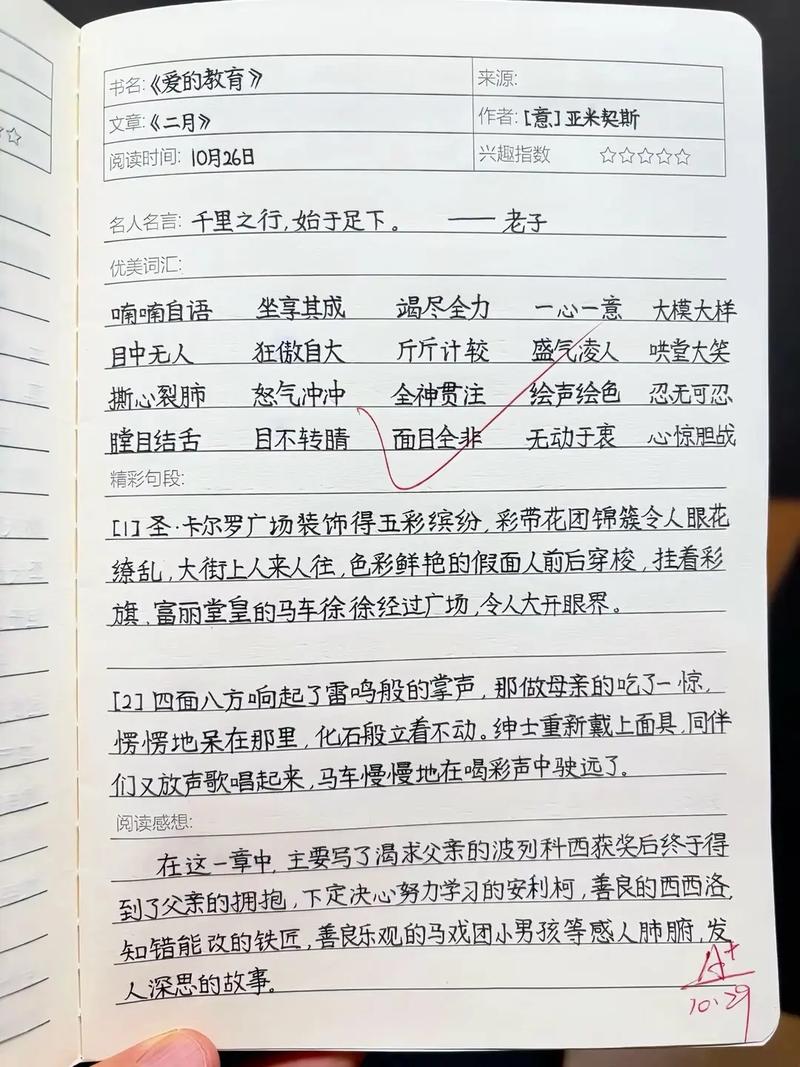 书名:《爱的教育》 来源:
文章:《二月》 作者:[意]亚米契斯
阅读时间: 10月26日 兴趣指数 ☆☆☆☆☆
名人名言: 千里之行,始于足下。 —— 老子
优美词汇:
喃喃自语 坐享其成 竭尽全力 一心一意 大模大样
目中无人 狂傲自大 斤斤计较 盛气凌人 哄堂大笑
撕心裂肺 怒气冲冲 全神贯注 绘声绘色 忍无可忍
瞠目结舌 目不转睛 面目全非 无动于衷 心惊胆战
精彩句段:
[1] 圣·卡尔罗广场装饰得五彩缤纷,彩带花团锦簇令人眼花
缭乱,大街上人来人往,色彩鲜艳的假面人前后穿梭,挂着彩
旗、富丽堂皇的马车徐徐经过广场,令人大开眼界。
[2] 四面八方响起了雷鸣般的掌声,那做母亲的吃了一惊,
愣愣地呆在那里,化石般立着不动。绅士重新戴上面具,同伴
们又放声歌唱起来,马车慢慢地在喝彩声中驶远了。
阅读感想:
在这一章中,主要写了渴求父亲的波列科西获奖后终于得
到了父亲的拥抱,下定决心努力学习的安利柯,善良的西西洛,
知错能改的铁匠,善良乐观的马戏团小男孩等感人肺腑,发
人深思的故事。
A+
10.29